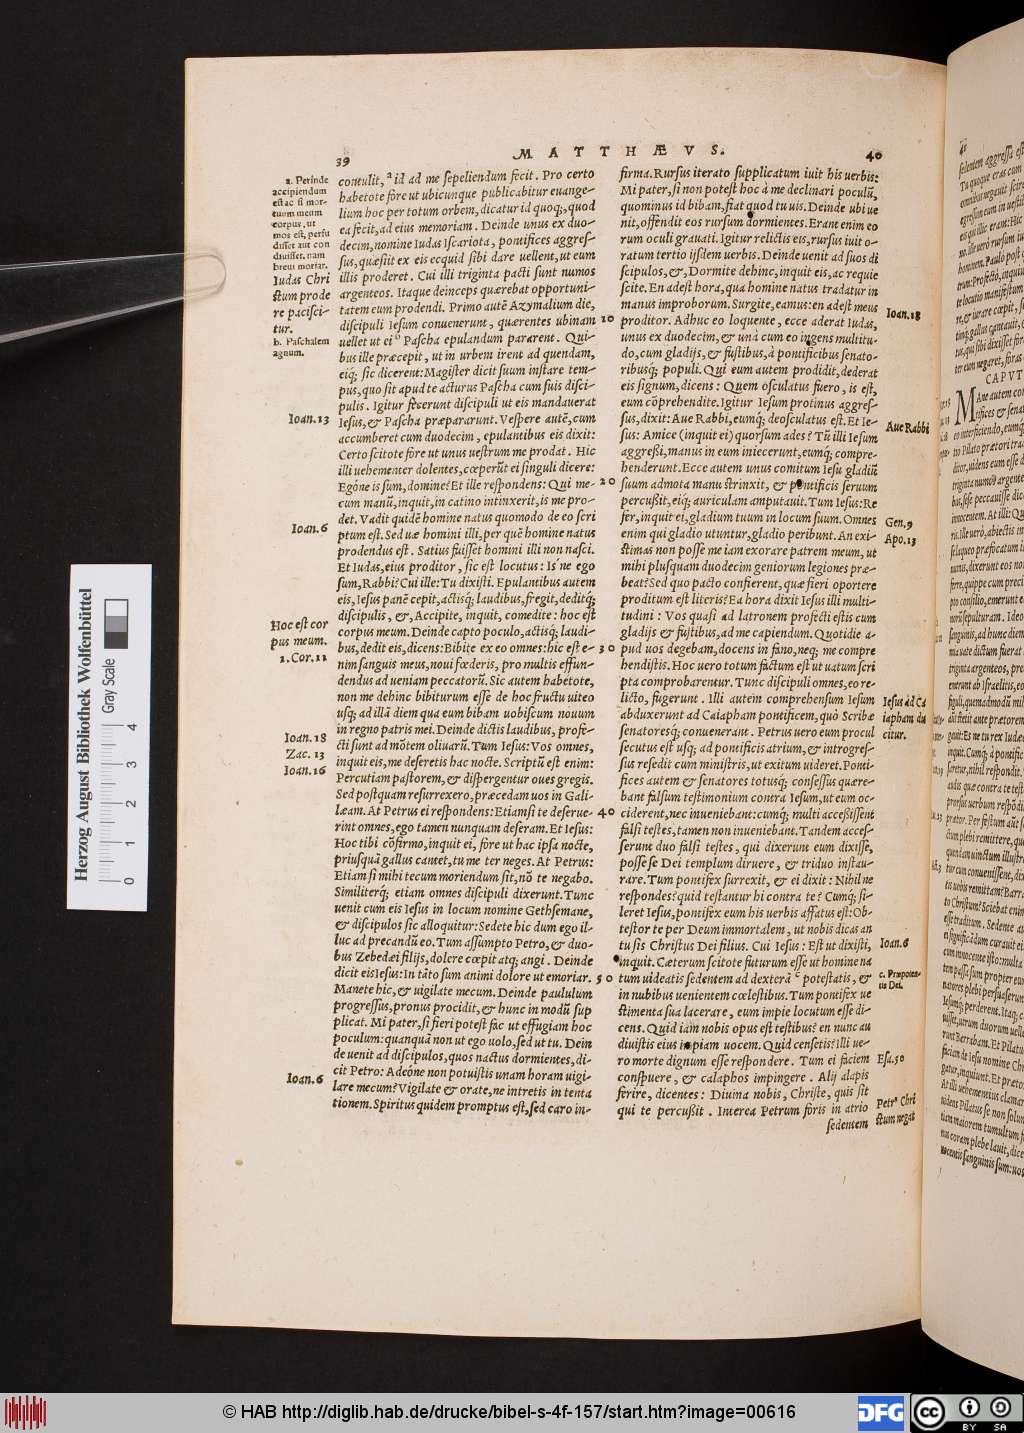 39
MATTHÆVS.
40
a. Perinde
accipiendum
est ac si mor-
tuum meum
corpus, ut
mos est, perfu
disset aut con
diuisset, nam
breui moriar.
Iudas Chri
stum prode
re pacisci-
tur.
b. Paschalem
agnum.
Ioan.13
Ioan.6
Hoc est cor
pus meum.
1.Cor.11
Ioan.18
Zac. 13
Ioan.16
Ioan.6
contulit, a id ad me sepeliendum fecit. Pro certo
habetote fore ut ubicunque publicabitur euange-
lium hoc per totum orbem, dicatur id quoq;, quod
ea fecit, ad eius memoriam. Deinde unus ex duo-
decim, nomine Iudas Iscariota, pontifices aggres-
sus, quæsiit ex eis ecquid sibi dare uellent, ut eum
illis proderet. Cui illi triginta pacti sunt numos
argenteos. Itaque deinceps quærebat opportuni-
tatem eum prodendi. Primo autē Azymalium die,
discipuli Iesum conuenerunt, quærentes ubinam
uellet ut ei b Pascha epulandum pararent. Qui-
bus ille præcepit, ut in urbem irent ad quendam,
eiq; sic dicerent: Magister dicit suum instare tem-
pus, quo sit apud te acturus Pascha cum suis disci-
pulis. Igitur fecerunt discipuli ut eis mandauerat
Iesus, & Pascha præpararunt. Vespere autē, cum
accumberet cum duodecim, epulantibus eis dixit:
Certo scitote fore ut unus uestrum me prodat. Hic
illi uehementer dolentes, cœperūt ei singuli dicere:
Egóne is sum, domine? Et ille respondens: Qui me-
cum manū, inquit, in catino intinxerit, is me pro-
det. Vadit quidē homine natus quomodo de eo scri
ptum est. Sed uæ homini illi, per quē homine natus
prodendus est. Satius fuisset homini illi non nasci.
Et Iudas, eius proditor, sic est locutus: Is ne ego
sum, Rabbi? Cui ille: Tu dixisti. Epulantibus autem
eis, Iesus panē cepit, actisq; laudibus, fregit, deditq;
discipulis, &, Accipite, inquit, comedite: hoc est
corpus meum. Deinde capto poculo, actisq; laudi-
bus, dedit eis, dicens: Bibite ex eo omnes: hic est e-
nim sanguis meus, noui fœderis, pro multis effun-
dendus ad ueniam peccatorū. Sic autem habetote,
non me debinc bibiturum esse de hoc fructu uiteo
usq; ad illā diem qua eum bibam uobiscum nouum
in regno patris mei. Deinde dictis laudibus, profe-
cti sunt ad mōtem oliuarū. Tum Iesus: Vos omnes,
inquit eis, me deseretis hac nocte. Scriptū est enim:
Percutiam pastorem, & dispergentur oues gregis.
Sed postquam resurrexero, præcedam uos in Gali-
læam. At Petrus ei respondens: Etiamsi te deserue-
rint omnes, ego tamen nunquam deseram. Et Iesus:
Hoc tibi cōfirmo, inquit ei, fore ut hac ipsa nocte,
priusquā gallus cantet, tu me ter neges. At Petrus:
Etiam si mihi tecum moriendum sit, nō te negabo.
Similiterq; etiam omnes discipuli dixerunt. Tunc
uenit cum eis Iesus in locum nomine Gethsemane,
& discipulos sic alloquitur: Sedete hic dum ego il-
luc ad precandū eo. Tum assumpto Petro, & duo-
bus Zebedæi filijs, dolere cœpit atq; angi. Deinde
dicit eis Iesus: In tāto sum animi dolore ut emoriar.
Manete hic, & uigilate mecum. Deinde paululum
progressus, pronus procidit, & hunc in modū sup
plicat. Mi pater, si fieri potest fac ut effugiam hoc
poculum: quanquā non ut ego uolo, sed ut tu. Dein
de uenit ad discipulos, quos nactus dormientes, di-
cit Petro: Adeóne non potuistis unam horam uigi-
lare mecum? Vigilate & orate, ne intretis in tenta
tionem. Spiritus quidem promptus est, sed caro in-
10
20
30
40
50
firma. Rursus iterato supplicatum iuit his uerbis:
Mi pater, si non potest hoc à me declinari poculū,
quominus id bibam, fiat quod tu uis. Deinde ubi ue
nit, offendit eos rursum dormientes. Erant enim eo
rum oculi grauati. Igitur relictis eis, rursus iuit o-
ratum tertio ijsdem uerbis. Deinde uenit ad suos di
scipulos, &, Dormite debinc, inquit eis, ac requie
scite. En adest hora, qua homine natus tradatur in
manus improborum. Surgite, eamus: en adest meus
proditor. Adhuc eo loquente, ecce aderat Iudas,
unus ex duodecim, & unà cum eo ingens multitu-
do, cum gladijs, & fustibus, à pontificibus senato-
ribusq; populi. Qui eum autem prodidit, dederat
eis signum, dicens: Quem osculatus fuero, is est,
eum cōprehendite. Igitur Iesum protinus aggres-
sus, dixit: Aue Rabbi, eumq; deosculatus est. Et Ie-
sus: Amice (inquit ei) quorsum ades? Tū illi Iesum
aggreßi, manus in eum iniecerunt, eumq; compre-
henderunt. Ecce autem unus comitum Iesu gladiū
suum admota manu strinxit, & pontificis seruum
percußit, eiq; auriculam amputauit. Tum Iesus: Re
fer, inquit ei, gladium tuum in locum suum. Omnes
enim qui gladio utuntur, gladio peribunt. An exi-
stimas non posse me iam exorare patrem meum, ut
mihi plusquam duodecim geniorum legiones præ-
beat? Sed quo pacto confierent, quæ fieri oportere
proditum est literis? Ea hora dixit Iesus illi multi-
tudini: Vos quasi ad latronem profecti estis cum
gladijs & fustibus, ad me capiendum. Quotidie a-
pud uos degebam, docens in fano, neq; me compre
hendistis. Hoc uero totum factum est ut uatum scri
pta comprobarentur. Tunc discipuli omnes, eo re-
licto, fugerunt. Illi autem comprehensum Iesum
abduxerunt ad Caiapham pontificem, quò Scribæ
senatoresq; conuenerant. Petrus uero eum procul
secutus est usq; ad pontificis atrium, & introgres-
sus resedit cum ministris, ut exitum uideret. Ponti-
fices autem & senatores totusq; consessus quære-
bant falsum testimonium contra Iesum, ut eum oc-
ciderent, nec inueniebant: cumq; multi acceßissent
falsi testes, tamen non inueniebant. Tandem acces-
serunt duo falsi testes, qui dixerunt eum dixisse,
posse se Dei templum diruere, & triduo instau-
rare. Tum pontifex surrexit, & ei dixit: Nihil ne
respondes? quid testantur hi contra te? Cumq; si-
leret Iesus, pontifex eum his uerbis affatus est: Ob-
testor te per Deum immortalem, ut nobis dicas an
tu sis Christus Dei filius. Cui Iesus: Est ut dixisti,
inquit. Cæterum scitote futurum esse ut homine na
tum uideatis sedentem ad dexterā c potestatis, &
in nubibus uenientem cœlestibus. Tum pontifex ue
stimenta sua lacerare, eum impie locutum esse di-
cens. Quid iam nobis opus est testibus? en nunc au
diuistis eius impiam uocem. Quid censetis? Illi ue-
ro morte dignum esse respondere. Tum ei faciem
conspuere, & calaphos impingere. Alij alapis
ferire, dicentes: Diuina nobis, Christe, quis sit
qui te percußit. Interea Petrum foris in atrio
sedentem
Ioan.18
Aue Rabbi
Gen.9
Apo.13
Iesus ad Ca
iapham du
citur.
Ioan.6
c. Præpoten-
tis Dei.
Esa.50
Petrus Chri
stum negat
41
CAPVT
Herzog August Bibliothek Wolfenbüttel
Gray Scale
0 1 2 3 4
© HAB http://diglib.hab.de/drucke/bibel-s-4f-157/start.htm?image=00616
DFG
cc
BY SA